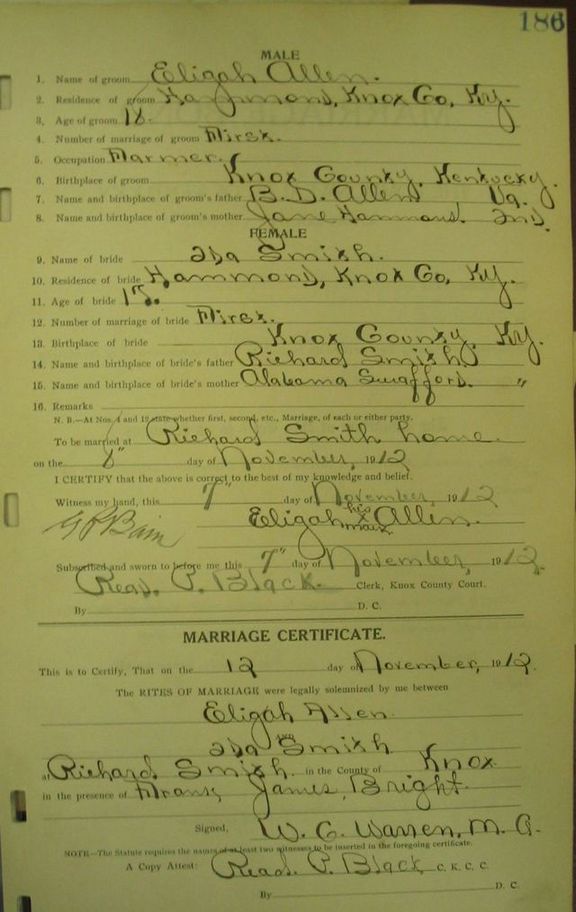 186
MALE
1. Name of groom Eligah Allen.
2. Residence of groom Hammond, Knox Co, Ky.
3. Age of groom 18
4. Number of marriage of groom First.
5. Occupation Farmer.
6. Birthplace of groom Knox County, Kentucky.
7. Name and birthplace of groom's father B. D. Allen Va.
8. Name and birthplace of groom's mother Jane Hammons. Ind.
FEMALE
9. Name of bride Ida Smith.
10. Residence of bride Hammond, Knox Co, Ky.
11. Age of bride
12. Number of marriage of bride First.
13. Birthplace of bride Knox County, Ky.
14. Name and birthplace of bride's father Richard Smith "
15. Name and birthplace of bride's mother Alabama Swafford. "
16. Remarks
N. B.—At Nos. 4 and 12 state whether first, second, etc., Marriage, of each or either party.
To be married at Richard Smith home.
on the 8" day of November, 1912
I CERTIFY that the above is correct to the best of my knowledge and belief.
Witness my hand, this 7" day of November, 1912
G P Bain Eligah his x mark Allen.
Subscribed and sworn to before me this 7" day of November, 1912.
Read. P. Black. Clerk, Knox County Court.
By D. C.
MARRIAGE CERTIFICATE.
This is to Certify, That on the 12 day of November, 1912.
The RITES OF MARRIAGE were legally solemnized by me between
Eligah Allen
Ida Smith
at Richard Smith in the County of Knox
in the presence of Frank James, Bright.
Signed, W. C. Warren, M. G.
NOTE—The Statute requires the names of at least two witnesses to be inserted in the foregoing certificate.
A Copy Attest: Read. P. Black C. K. C. C.
By D. C.